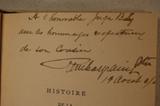 A l'honorable Juge Baby
avec les hommages respectueux
de son Cousin
19 août
HISTOIRE
DE LA